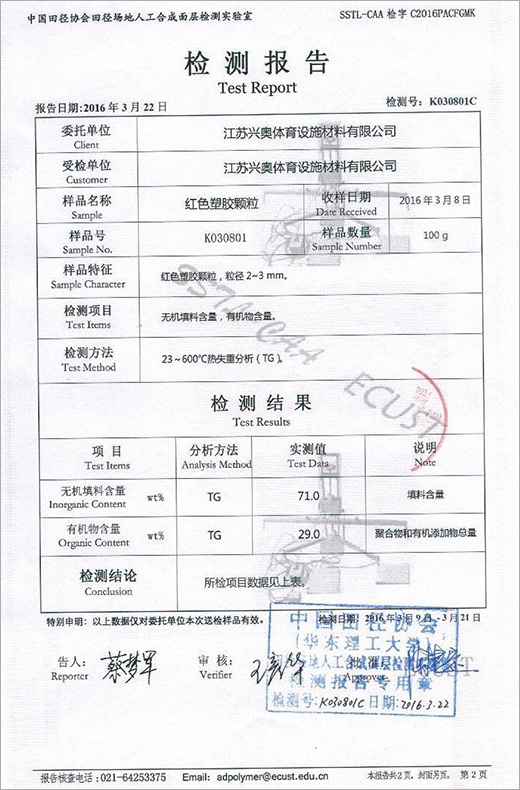 中国田径协会田径场地人工合成面层检测实验室 SSTL-CAA 检字 C2016PACFGMK
检 测 报 告
Test Report
报告日期:2016 年 3 月 22 日 检测号: K030801C
委托单位 江苏兴奥体育设施材料有限公司
Client
受检单位 江苏兴奥体育设施材料有限公司
Customer
样品名称 红色塑胶颗粒 收样日期 2016 年 3 月 8 日
Sample Date Received
样品号 K030801 样品数量 100 g
Sample No. Sample Number
样品特征 红色塑胶颗粒，粒径 2~3 mm。
Sample Character
检测项目 无机填料含量，有机物含量。
Test Items
检测方法 23~600℃热失重分析（TG）。
Test Method
SSTA CAA ECUST
检 测 结 果
Test Results
项 目 分析方法 实测值 说明
Test Items Analysis Method Test Data Note
无机填料含量 wt% TG 71.0 填料含量
Inorganic Content
有机物含量 wt% TG 29.0 聚合物和有机添加物总量
Organic Content
检测结论 所检项目数据见上表。
Conclusion
特别申明：以上数据仅对委托单位本次送检样品有效。 检测日期: 2016 年 3 月 9 日-3 月 21 日
中国田径协会
(华东理工大学)
检测报告专用章
检测号: K030801C 日期: 2016.3.22
告人: 蔡梦军 审 核: 批 准:
Reporter Verifier Approver
报告核查电话：021-64253375 Email: adpolymer@ecust.edu.cn 本报告共2页，封面另页。 第 2 页